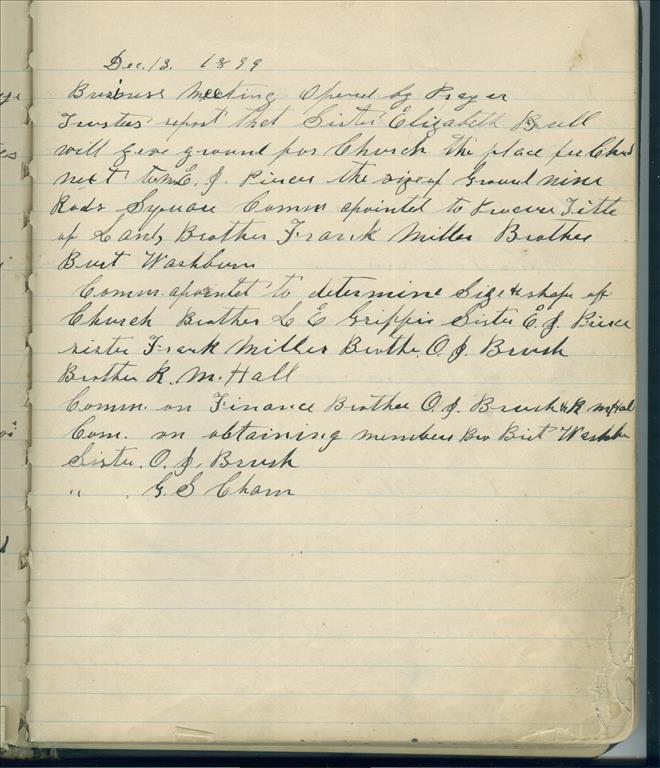 Dec. 13. 1899
Business Meeting Opened by Prayer
Trustees report that Sister Elizabeth Bull
will give ground for Church the place for Church
next to E. J. Pierces the size of Ground nine
Rods Squace Comm apointed to Procure Title
of Land, Brother Frank Miller Brother
Burt Washburn
Comm. apointet to determine Size & shape of
Church Brother L E Griffin Sister E. J. Pierce
sister Frank Miller Brothe. O. J. Brush
Brother R. M. Hall
Comm. on Finance Brother O. J. Brush & R M Hall
Com. on obtaining members Bro Birt Washbu
Sister. O. J. Brush
" . G. S